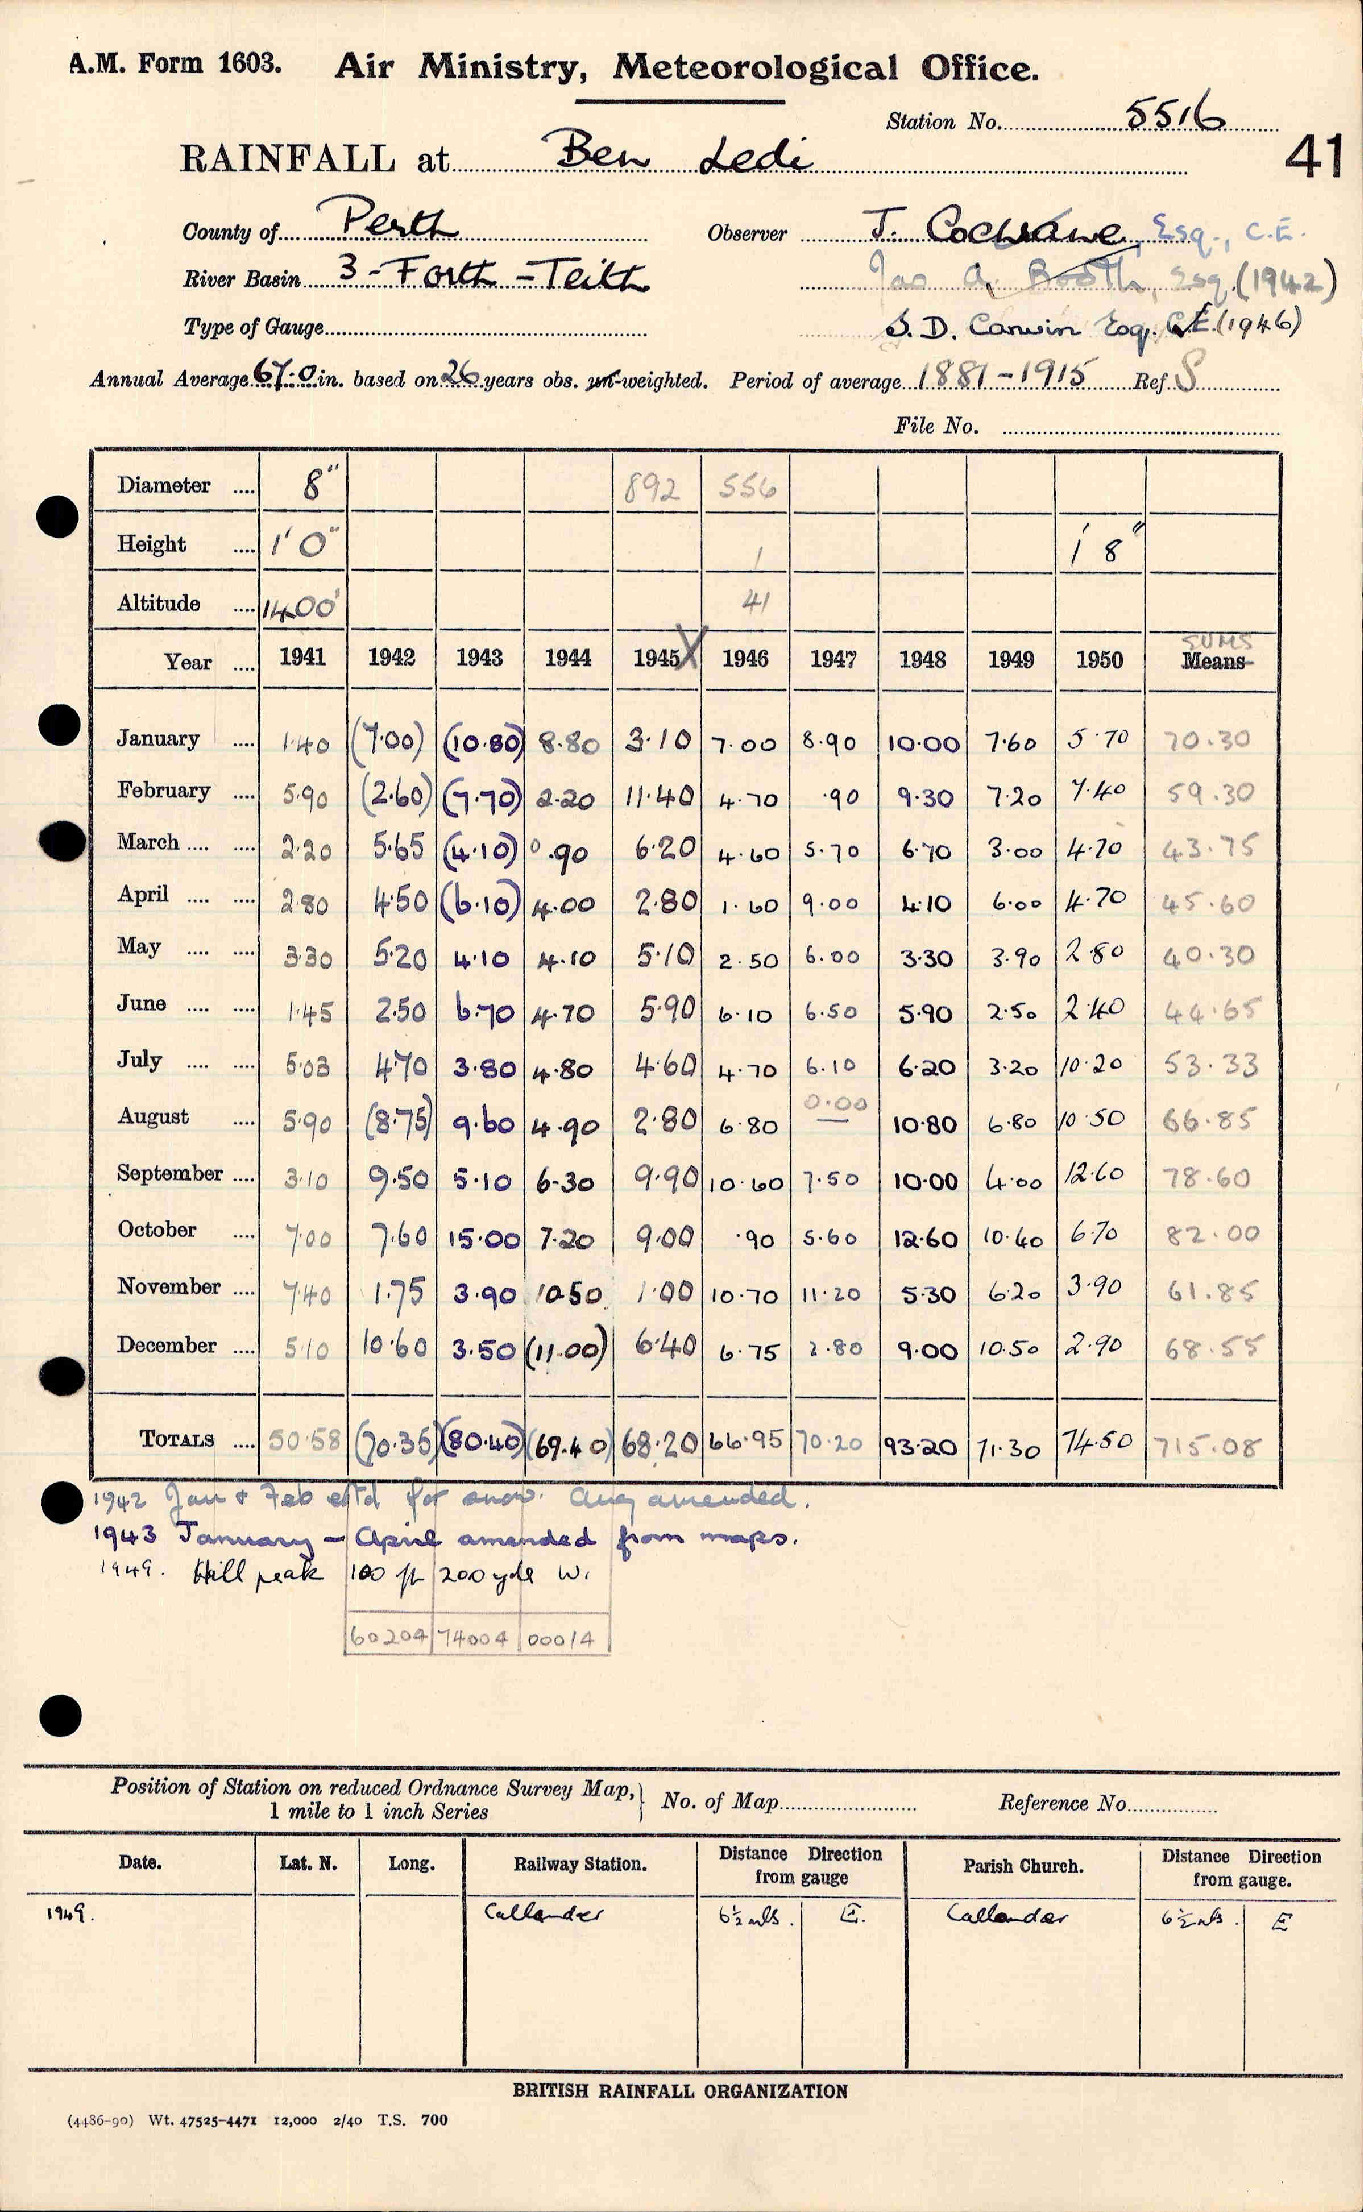 A.M. Form 1603. Air Ministry, Meteorological Office.
Station No. 5516
41
RAINFALL at Ben Ledi
County of Perth Observer J. Cochrane, Esq., C.E.
River Basin 3 - Forth - Teith Jas A. Booth, Esq. (1942)
Type of Gauge S. D. Canvin Esq. C.E. (1946)
Annual Average 67.0 in. based on 26 years obs. un-weighted. Period of average 1881-1915 Ref. S
File No.
Diameter .... 8" 892 556
Height .... 1' 0" 1 1' 8"
Altitude .... 1400' 41
SUMS
Year .... 1941 1942 1943 1944 1945 X 1946 1947 1948 1949 1950 Means
January .... 1.40 (7.00) (10.80) 8.80 3.10 7.00 8.90 10.00 7.60 5.70 70.30
February .... 5.90 (2.60) (7.70) 2.20 11.40 4.70 .90 9.30 7.20 7.40 59.30
March .... .... 2.20 5.65 (4.10) 0.90 6.20 4.60 5.70 6.70 3.00 4.70 43.75
April .... .... 2.80 4.50 (6.10) 4.00 2.80 1.60 9.00 4.10 6.00 4.70 45.60
May .... .... 3.30 5.20 4.10 4.10 5.10 2.50 6.00 3.30 3.90 2.80 40.30
June .... .... 1.45 2.50 6.70 4.70 5.90 6.10 6.50 5.90 2.50 2.40 44.65
July .... .... 5.03 4.70 3.80 4.80 4.60 4.70 6.10 6.20 3.20 10.20 53.33
August .... 5.90 (8.75) 9.60 4.90 2.80 6.80 0.00 — 10.80 6.80 10.50 66.85
September .... 3.10 9.50 5.10 6.30 9.90 10.60 7.50 10.00 4.00 12.60 78.60
October .... 7.00 7.60 15.00 7.20 9.00 .90 5.60 12.60 10.40 6.70 82.00
November .... 7.40 1.75 3.90 10.50 1.00 10.70 11.20 5.30 6.20 3.90 61.85
December .... 5.10 10.60 3.50 (11.00) 6.40 6.75 2.80 9.00 10.50 2.90 68.55
TOTALS .... 50.58 (70.35) (80.40) (69.40) 68.20 66.95 70.20 93.20 71.30 74.50 715.08
1942 Jan & Feb est'd for snow. Aug amended.
1943 January - April amended from maps.
1949. Hill peak 100 ft 200 yds W.
60204 74004 00014
Position of Station on reduced Ordnance Survey Map,
1 mile to 1 inch Series
No. of Map Reference No.
Date. Lat. N. Long. Railway Station. Distance Direction from gauge Parish Church. Distance Direction from gauge.
1949. Callander 6½ mls. E. Callander 6½ mls. E
BRITISH RAINFALL ORGANIZATION
(4486-90) Wt. 47525-4471 12,000 2/40 T.S. 700